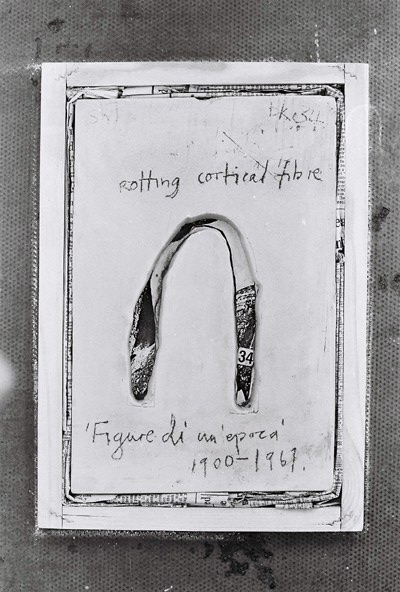 rotting cortical fibre
34
'Figure di un'epoca'
1900-1967.